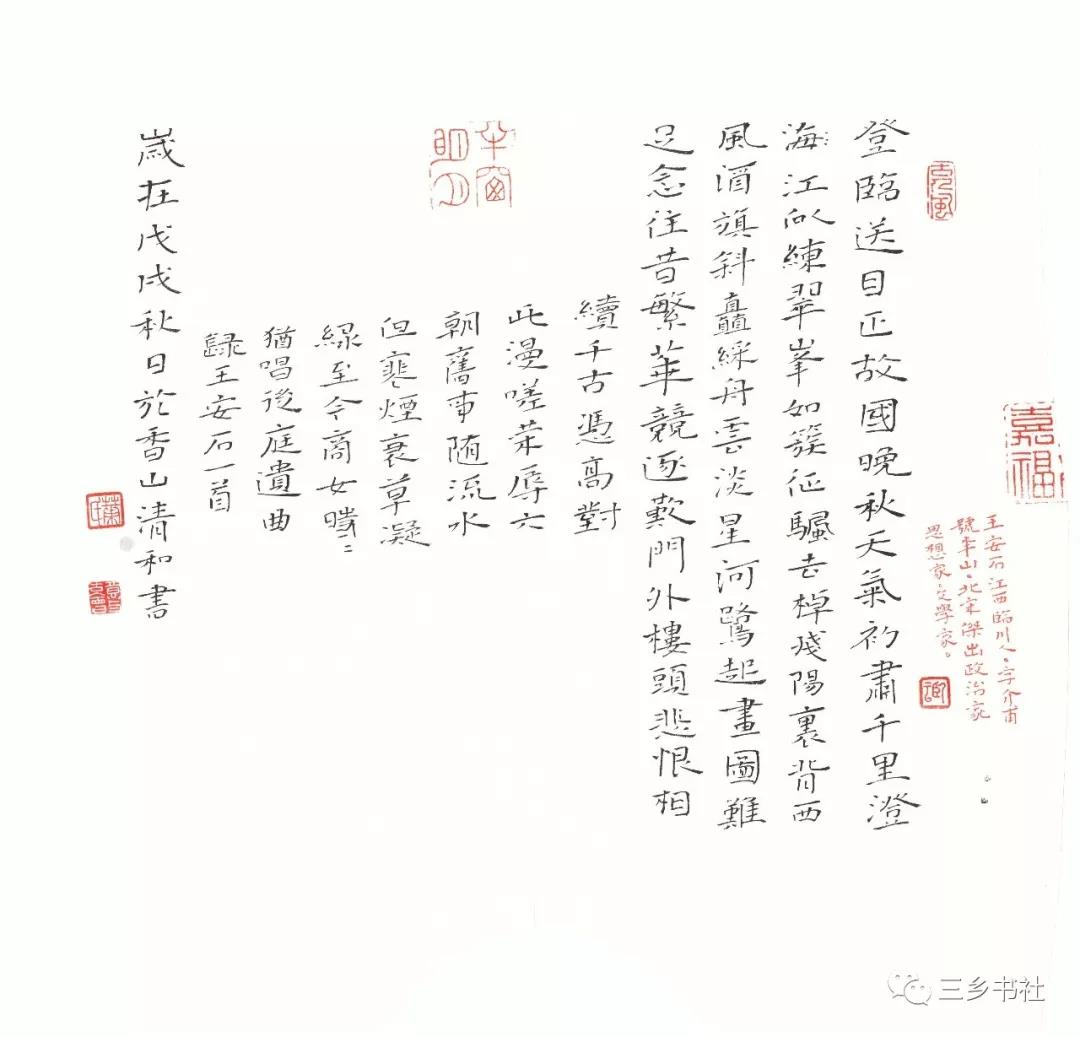 嘉福
王安石江西臨川人。字介甫
號半山。北宋傑出政治家
思想家文學家。
登臨送目正故國晚秋天氣初肅千里澄
海江似練翠峯如簇征颿去棹殘陽裏背西
風酒旗斜矗綵舟雲淡星河鷺起畫圖難
足念往昔繁華競逐歎門外樓頭悲恨相
續千古憑高對
此漫嗟荣辱六
朝舊事随流水
但寒煙衰草凝
緑至今商女時〻
猶唱後庭遺曲
録王安石一首
半窗明月
歲在戊戌秋日於香山清和書
三乡书社